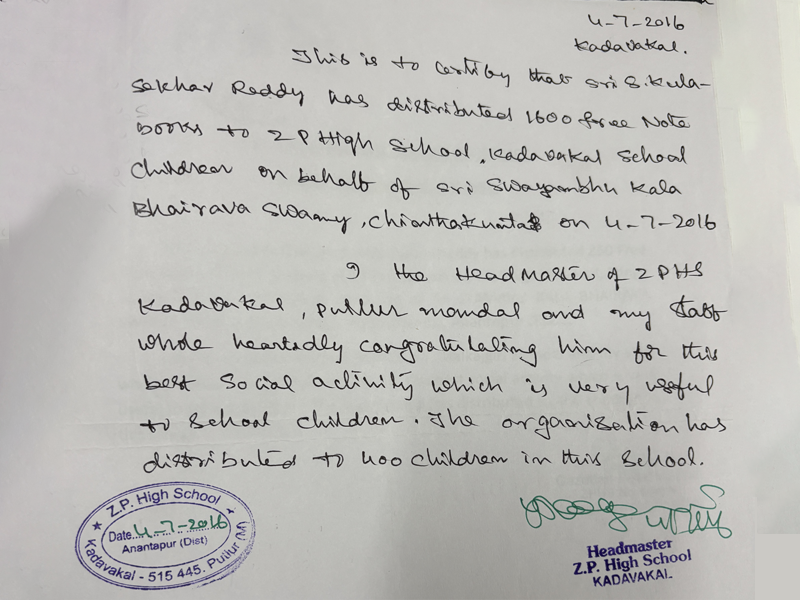 4-7-2016
Kadavakal.
This is to certify that Sri S. Kula-
sekhar Reddy has distributed 1600 free Note
books to Z P High School, Kadavakal School
Children on behalf of Sri Swayambhu Kala
Bhairava Swamy, on 4-7-2016
I the Head Master of ZPHS
Kadavakal, Putlur mandal and my staff
whole heartedly congratulating him for this
best social activity which is very useful
to school children. The organisation has
distributed to 400 children in this School.
Z.P. High School
Date 4-7-2016
Anantapur (Dist)
Kadavakal - 515 445. Putlur (M)
Headmaster
Z.P. High School
KADAVAKAL